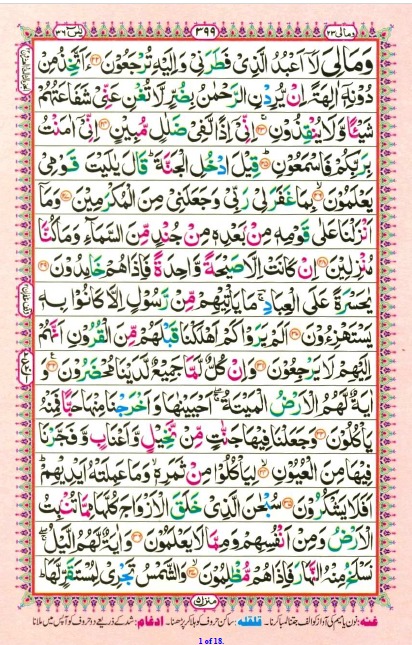 یٰسٓ ۳۶ ۳۹۹ ومالی ۲۳
وَمَالِیَ لَاۤ اَعْبُدُ الَّذِیْ فَطَرَنِیْ وَاِلَیْهِ تُرْجَعُوْنَ ۲۲ ءَاَتَّخِذُ مِنْ
دُوْنِهٖۤ اٰلِهَةً اِنْ یُّرِدْنِ الرَّحْمٰنُ بِضُرٍّ لَّا تُغْنِ عَنِّیْ شَفَاعَتُهُمْ
شَیْـًٔا وَّلَا یُنْقِذُوْنِ ۲۳ اِنِّیْۤ اِذًا لَّفِیْ ضَلٰلٍ مُّبِیْنٍ ۲۴ اِنِّیْۤ اٰمَنْتُ
بِرَبِّكُمْ فَاسْمَعُوْنِ ۲۵ قِیْلَ ادْخُلِ الْجَنَّةَ ؕ قَالَ یٰلَیْتَ قَوْمِیْ
یَعْلَمُوْنَ ۲۶ بِمَا غَفَرَ لِیْ رَبِّیْ وَجَعَلَنِیْ مِنَ الْمُكْرَمِیْنَ ۲۷ وَمَاۤ
اَنْزَلْنَا عَلٰی قَوْمِهٖ مِنْۢ بَعْدِهٖ مِنْ جُنْدٍ مِّنَ السَّمَآءِ وَمَا كُنَّا
مُنْزِلِیْنَ ۲۸ اِنْ كَانَتْ اِلَّا صَیْحَةً وَّاحِدَةً فَاِذَا هُمْ خٰمِدُوْنَ ۲۹
یٰحَسْرَةً عَلَی الْعِبَادِ ۚ مَا یَاْتِیْهِمْ مِّنْ رَّسُوْلٍ اِلَّا كَانُوْا بِهٖ
یَسْتَهْزِءُوْنَ ۳۰ اَلَمْ یَرَوْا كَمْ اَهْلَكْنَا قَبْلَهُمْ مِّنَ الْقُرُوْنِ اَنَّهُمْ
اِلَیْهِمْ لَا یَرْجِعُوْنَ ۳۱ وَاِنْ كُلٌّ لَّمَّا جَمِیْعٌ لَّدَیْنَا مُحْضَرُوْنَ ۳۲ وَ
اٰیَةٌ لَّهُمُ الْاَرْضُ الْمَیْتَةُ ۖۚ اَحْیَیْنٰهَا وَ اَخْرَجْنَا مِنْهَا حَبًّا فَمِنْهُ
یَاْكُلُوْنَ ۳۳ وَجَعَلْنَا فِیْهَا جَنّٰتٍ مِّنْ نَّخِیْلٍ وَّاَعْنَابٍ وَّ فَجَّرْنَا
فِیْهَا مِنَ الْعُیُوْنِ ۳۴ لِیَاْكُلُوْا مِنْ ثَمَرِهٖ ۙ وَمَا عَمِلَتْهُ اَیْدِیْهِمْ ؕ
اَفَلَا یَشْكُرُوْنَ ۳۵ سُبْحٰنَ الَّذِیْ خَلَقَ الْاَزْوَاجَ كُلَّهَا مِمَّا تُنْۢبِتُ
الْاَرْضُ وَمِنْ اَنْفُسِهِمْ وَمِمَّا لَا یَعْلَمُوْنَ ۳۶ وَاٰیَةٌ لَّهُمُ الَّیْلُ ۖۚ
نَسْلَخُ مِنْهُ النَّهَارَ فَاِذَا هُمْ مُّظْلِمُوْنَ ۳۷ وَالشَّمْسُ تَجْرِیْ لِمُسْتَقَرٍّ لَّهَا ؕ
منزل ۵
غنه: نون یا میم کی آواز کو الف جتنا لمبا کرنا۔ قلقله: ساکن حروف کو ہلا کر پڑھنا۔ ادغام: شد کے ذریعے دو حروف کو آپس میں ملانا
1 of 18.